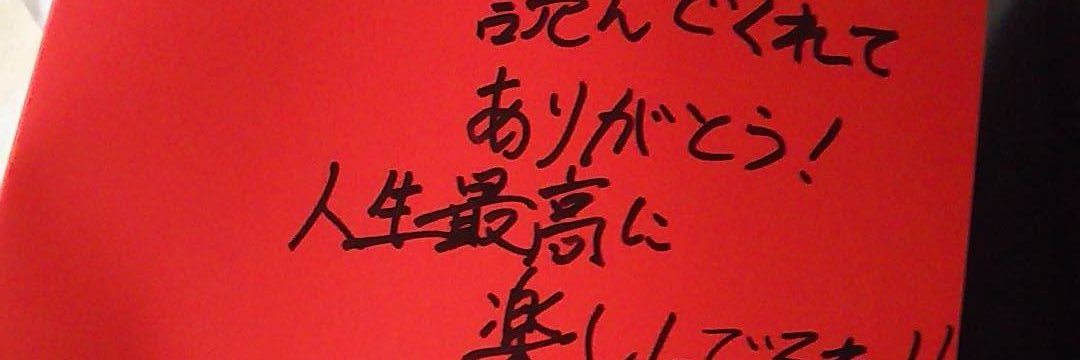 読んでくれて
ありがとう!
人生最高に
楽しんで